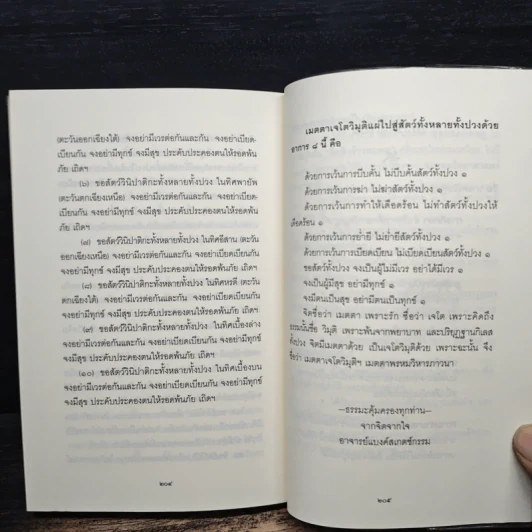 (ตะวันออกเฉียงใต้) จงอย่ามีเวรต่อกันและกัน จงอย่าเบียด-
เบียนกัน จงอย่ามีทุกข์ จงมีสุข ประคับประคองตนให้รอดพ้น
ภัย เถิดฯ
(๖) ขอสัตว์วินิปาติกะทั้งหลายทั้งปวง ในทิศพายัพ
(ตะวันตกเฉียงเหนือ) จงอย่ามีเวรต่อกันและกัน จงอย่าเบียด-
เบียนกัน จงอย่ามีทุกข์ จงมีสุข ประคับประคองตนให้รอดพ้น
ภัย เถิดฯ
(๗) ขอสัตว์วินิปาติกะทั้งหลายทั้งปวง ในทิศอีสาน (ตะวัน
ออกเฉียงเหนือ) จงอย่ามีเวรต่อกันและกัน จงอย่าเบียดเบียนกัน
จงอย่ามีทุกข์ จงมีสุข ประคับประคองตนให้รอดพ้นภัย เถิดฯ
(๘) ขอสัตว์วินิปาติกะทั้งหลายทั้งปวง ในทิศหรดี (ตะวัน
ตกเฉียงใต้) จงอย่ามีเวรต่อกันและกัน จงอย่าเบียดเบียนกัน
จงอย่ามีทุกข์ จงมีสุข ประคับประคองตนให้รอดพ้นภัย เถิดฯ
(๙) ขอสัตว์วินิปาติกะทั้งหลายทั้งปวง ในทิศเบื้องล่าง
จงอย่ามีเวรต่อกันและกัน จงอย่าเบียดเบียนกัน จงอย่ามีทุกข์
จงมีสุข ประคับประคองตนให้รอดพ้นภัย เถิดฯ
(๑๐) ขอสัตว์วินิปาติกะทั้งหลายทั้งปวง ในทิศเบื้องบน
จงอย่ามีเวรต่อกันและกัน จงอย่าเบียดเบียนกัน จงอย่ามีทุกข์
จงมีสุข ประคับประคองตนให้รอดพ้นภัย เถิดฯ
๒๐๔
เมตตาเจโตวิมุติแผ่ไปสู่สัตว์ทั้งหลายทั้งปวงด้วย
อาการ ๘ นี้ คือ
ด้วยการเว้นการบีบคั้น ไม่บีบคั้นสัตว์ทั้งปวง ๑
ด้วยการเว้นการฆ่า ไม่ฆ่าสัตว์ทั้งปวง ๑
ด้วยการเว้นการทำให้เดือดร้อน ไม่ทำสัตว์ทั้งปวงให้
เดือดร้อน ๑
ด้วยการเว้นการย่ำยี ไม่ย่ำยีสัตว์ทั้งปวง ๑
ด้วยการเว้นการเบียดเบียน ไม่เบียดเบียนสัตว์ทั้งปวง ๑
ขอสัตว์ทั้งปวง จงเป็นผู้ไม่มีเวร อย่าได้มีเวร ๑
จงเป็นผู้มีสุข อย่ามีทุกข์ ๑
จงมีตนเป็นสุข อย่ามีตนเป็นทุกข์ ๑
จิตชื่อว่า เมตตา เพราะรัก ชื่อว่า เจโต เพราะคิดถึง
ธรรมนั้นชื่อ วิมุติ เพราะพ้นจากพยาบาท และปริยุฏฐานกิเลส
ทั้งปวง จิตมีเมตตาด้วย เป็นเจโตวิมุติด้วย เพราะฉะนั้น จึง
ชื่อว่า เมตตาเจโตวิมุติฯ เมตตาพรหมวิหารภาวนา
–ธรรมะคุ้มครองทุกท่าน–
จากจิตจากใจ
อาจารย์แบงค์สเกตช์กรรม
๒๐๕